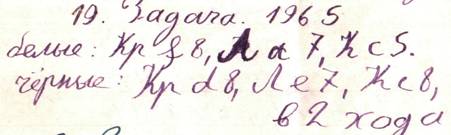 19. Задача. 1965
белые: Кр f8, Л a7, К c5.
чёрные: Кр d8, Л e7, К c8,
в 2 хода